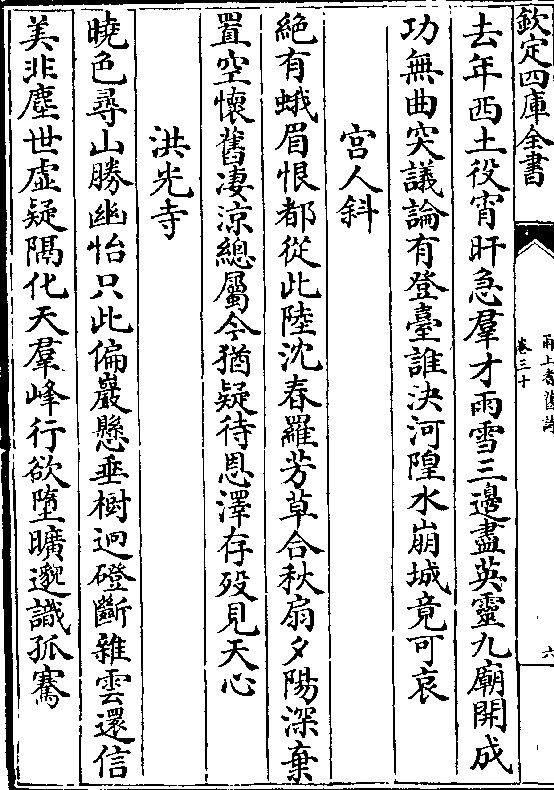 欽定四庫全書
甬上耆舊詩
卷三十
六
去年西土役宵旰急羣才雨雪三邊盡英靈九廟開成
功無曲突議論有登臺誰決河隍水崩城竟可哀
宫人斜
絶有蛾眉恨都從此陸沈春羅芳草合秋扇夕陽深棄
置空懷舊凄涼總屬今猶疑待恩澤存殁見天心
洪光寺
曉色尋山勝幽怡只此偏巖懸垂樹迥磴斷雜雲還信
美非塵世虚疑隔化天羣峰行欲墮曠邈識孤騫